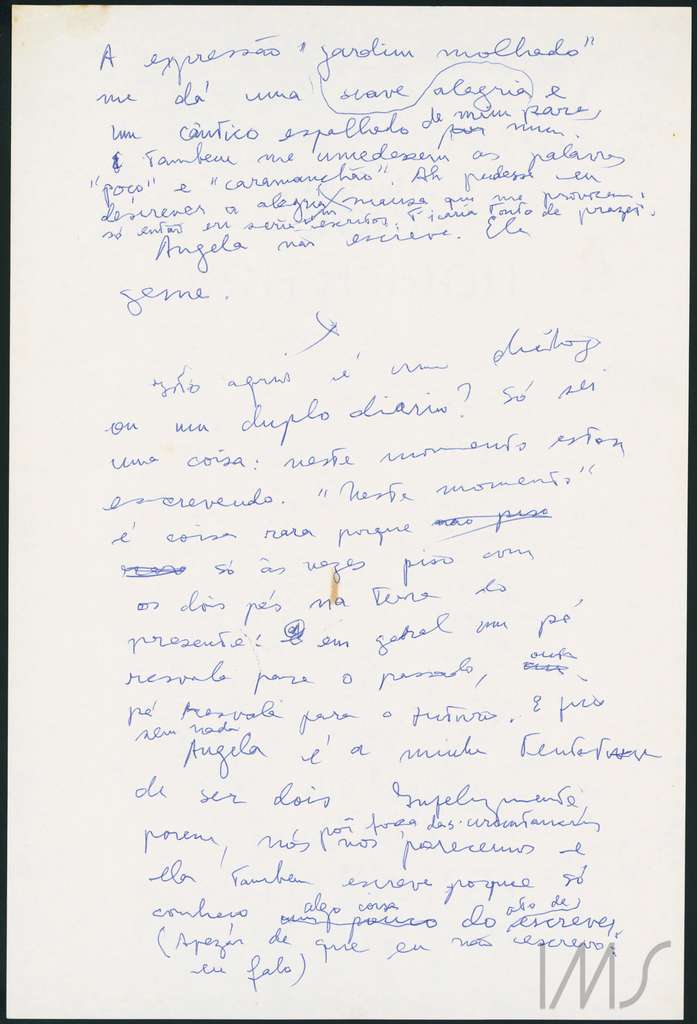 A expressão "jardim molhado"
me dá uma suave alegria e
um cântico espalhado de mim para
por mim.
E tambem me umedessem as palavras
"poço" e "caramanchão". Ah pudesse eu
descrever a alegria mansa que me provocam.
só então eu seria um escritor. Ficaria tonto de prazer.
Angela não escreve. Ela
geme.
Isto aqui é um diálogo
ou um duplo diario? Só sei
uma coisa: neste momento estou
escrevendo. "Neste momento"
é coisa rara porque não piso
só às vezes piso com
os dois pés na terra do
presente: em geral um pé
resvala para o passado, outro
pé resvala para o futuro. E fico
sem nada
Angela é a minha tentativa
de ser dois Infelizmente,
por força das circunstancias
porem, nós nos parecemos e
ela tambem escreve porque só
algo coisa ato de
conheço um pouco do escrever
(Apezar de que eu não escrevo:
eu falo)
IMS